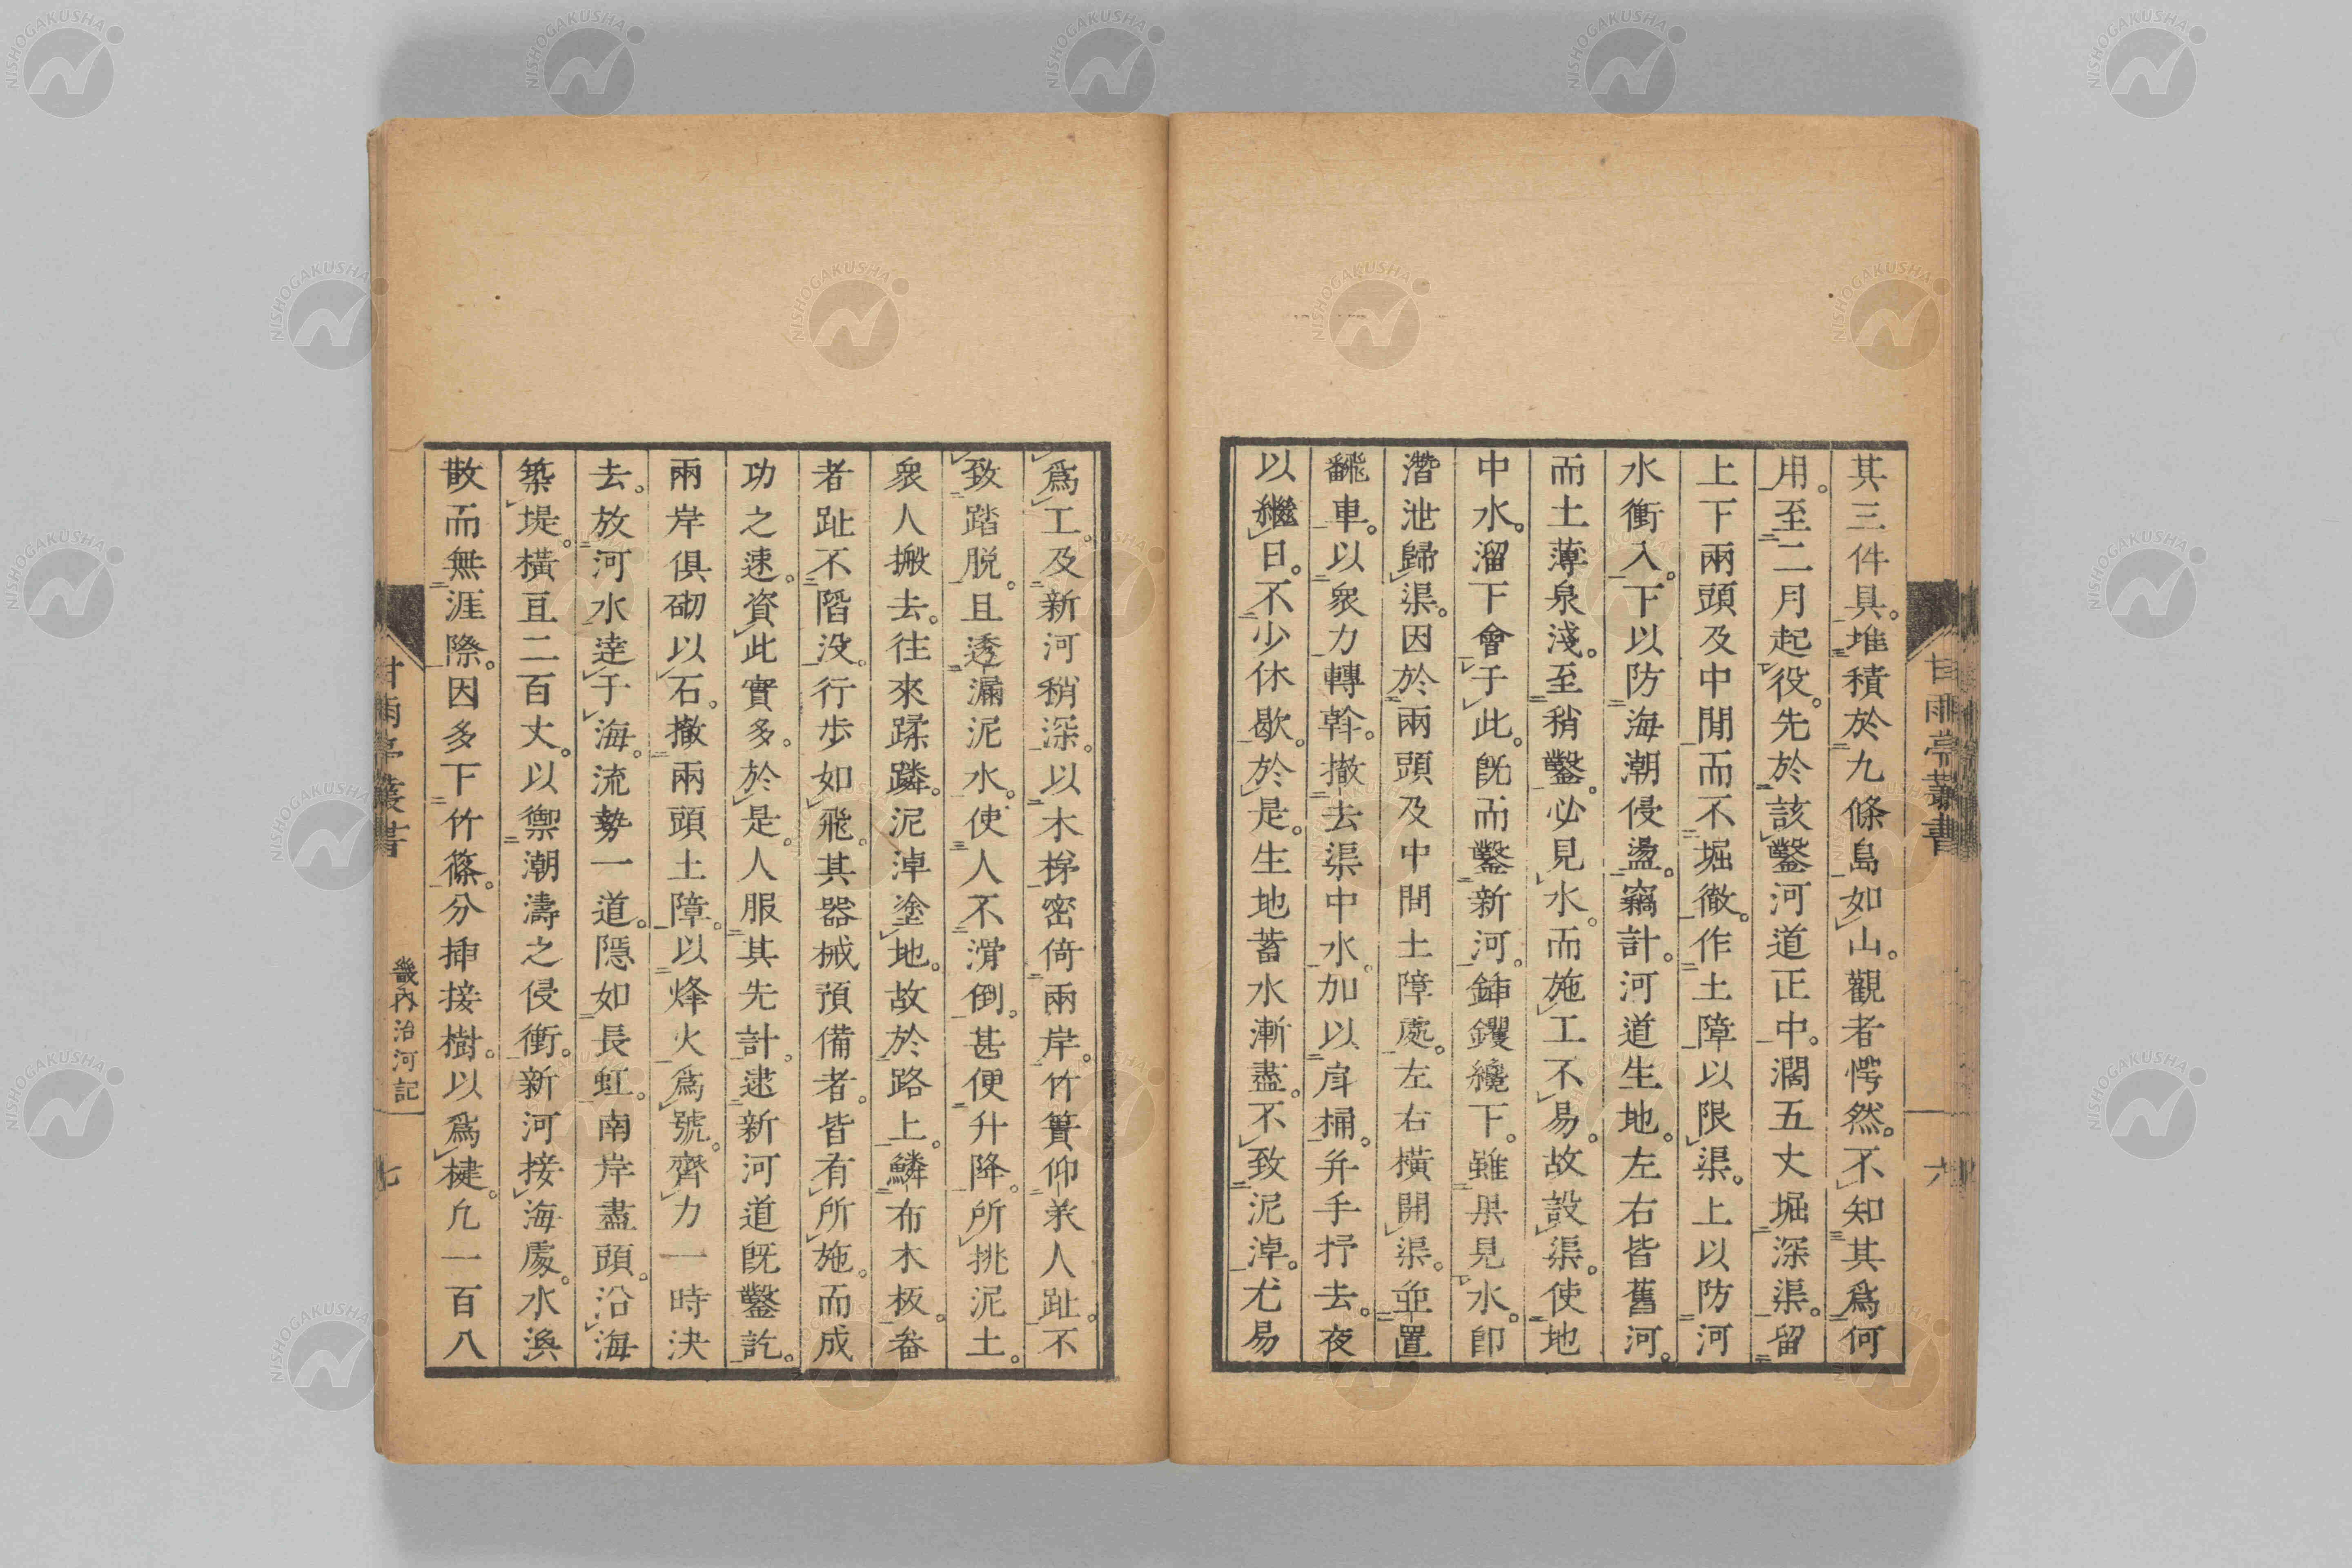 甘雨亭叢書
六
其三件具。堆積於九條島如山。觀者愕然。不知其爲何
用。至二月起役。先於該鑿河道正中。濶五丈堀深渠。留
上下兩頭及中間而不堀徹。作土障以限渠。上以防河
水衝入。下以防海潮侵盪。竊計。河道生地。左右皆舊河。
而土薄泉淺。至稍鑿。必見水。而施工不易。故設渠。使地
中水。溜下會于此。既而鑿新河。鍤钁纔下。雖果見水。卽
潛泄歸渠。因於兩頭及中間土障處。左右横開渠。並置
飜車。以衆力轉斡。撤去渠中水。加以戽桶。弁手抒去。夜
以繼日。不少休歇。於是。生地蓄水漸盡。不致泥淖。尤易
爲工。及新河稍深。以木梯密倚兩岸。竹簀仰承人趾。不
致踏脱。且透漏泥水。使人不滑倒。甚便升降。所挑泥土。
衆人搬去。往來蹂躪。泥淖塗地。故於路上。鱗布木板。畚
者趾不陷没。行歩如飛。其器械預備者。皆有所施。而成
功之速。資此實多。於是。人服其先計。逮新河道既鑿訖。
兩岸俱砌以石。撤兩頭土障。以烽火爲號。齊力一時決
去。放河水達于海。流勢一道。隱如長虹。南岸盡頭。沿海
築堤。横亘二百丈。以禦潮濤之侵衝。新河接海處。水渙
散而無涯際。因多下竹篠。分挿接樹。以爲楗。凢一百八
甘雨亭叢書
畿内治河記
七
NISHOGAKUSHA